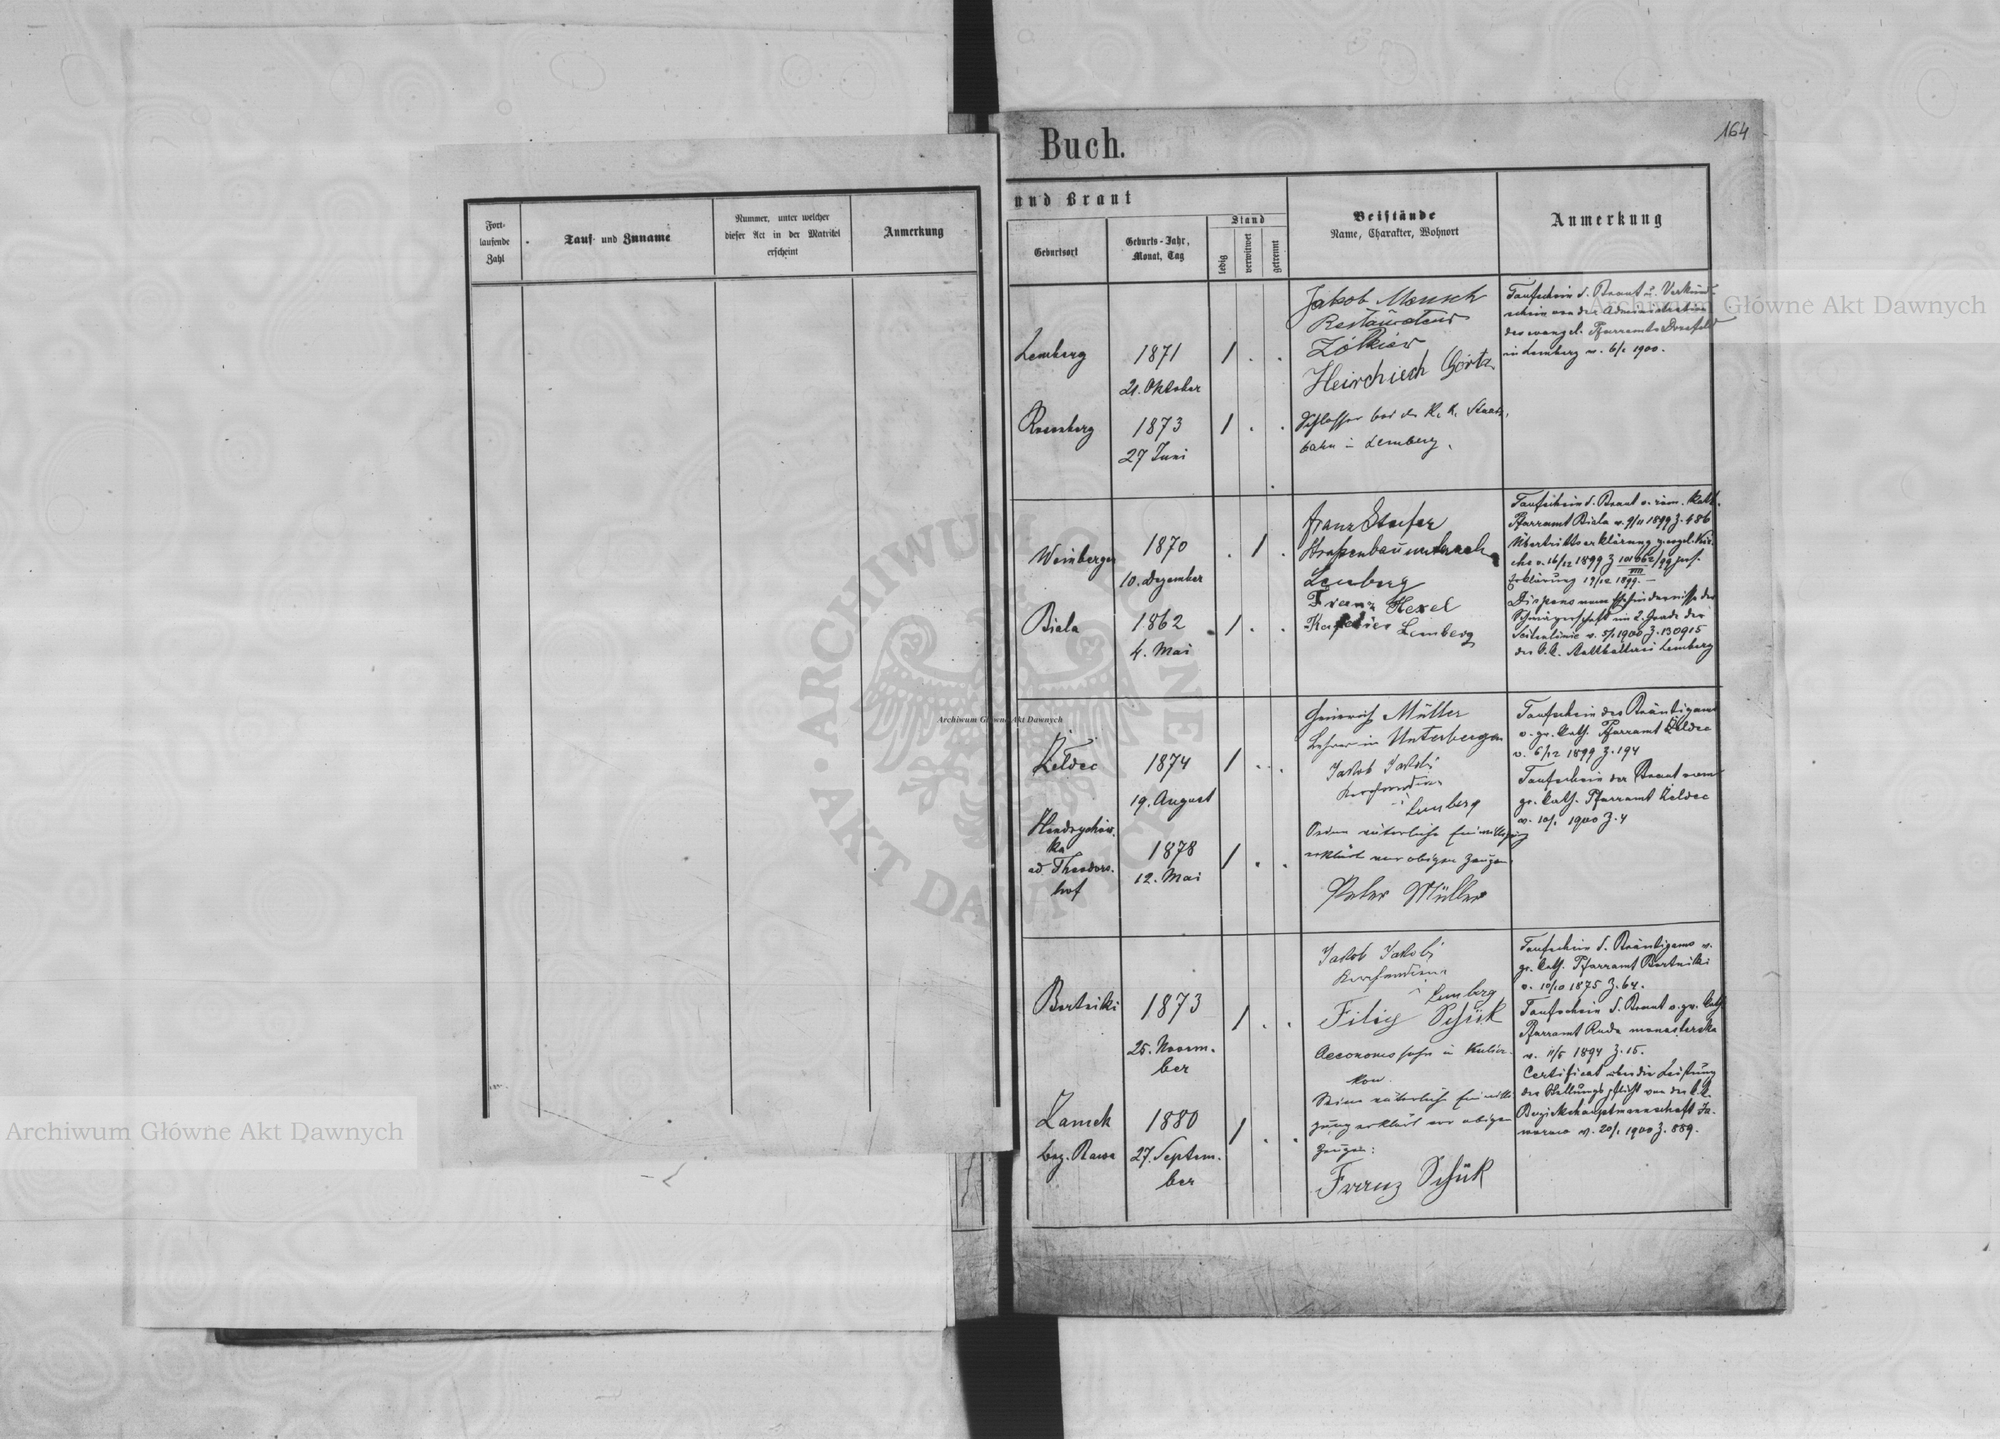 164
Buch.
Fort-
laufende
Zahl
Tauf- und Zuname
Nummer, unter welcher
dieser Act in der Matrikel
erscheint
Anmerkung
und Braut
Geburtsort
Geburts-Jahr,
Monat, Tag
Stand
ledig
verwitwet
getrennt
Beistände
Name, Charakter, Wohnort
Anmerkung
Lemberg
1871
21. Oktober
Jakob Mensch
Restaurateur
Zółkiew
Heinrich Görtz
Schlosser bei der K. K. Staats-
bahn in Lemberg.
Taufschein d. Braut u. Verkünd-
schein von der Administration
des evangel. Pfarramts Dornfeld
in Lemberg v. 6/1 1900.
Rosenberg
1873
27 Juni
Weinbergen
1870
10. Dezember
Franz
Lemberg
Franz Hexel
Lemberg
Taufschein d. Braut v. röm. kath.
Pfarramt Biala v. 9/11 1899 Z. 486
Übertrittserklärung z. evgel. Kir-
che v. 16/12 1899 Z.
Erklärung 19/12 1899.
Dispens vom Ehehindernisse der
Schwägerschaft im 2. Grade der
Seitenlinie v. 5/1 1900 Z. 130915
der k. k. Statthalterei Lemberg
Biala
1862
4. Mai
Żeldec
1874
19. August
Heinrich Müller
Lehrer in Unterbergen
Jakob Jakobi
Lemberg
Seine väterliche Einwilligung
erklärt vor obigen Zeugen:
Peter Müller
Taufschein des Bräutigams
v. gr. kath. Pfarramt Żeldec
v. 6/12 1899 Z. 194
Taufschein der Braut vom
gr. kath. Pfarramt Żeldec
v. 10/1 1900 Z. 4
ka
ad Theodors-
hof
1878
12. Mai
Bortniki
1873
25. Novem-
ber
Jakob Jakobi
Lemberg
Filip Schük
Oeconomssohn in
kow.
Seine väterliche Einwilli-
gung erklärt vor obigen
Zeugen:
Franz Schük
Taufschein d. Bräutigams v.
gr. kath. Pfarramt Bortniki
v. 10/10 1875 Z. 64.
Taufschein d. Braut v. gr. kath.
Pfarramt Ruda monasterska
v. 11/5 1894 Z. 15.
Certificat über die Leistung
der Stellungspflicht von der k. k.
Bezirkshauptmannschaft Ja-
worow v. 20/1 1900 Z. 889.
Zamek
bez. Rawa
1880
27. Septem-
ber
Archiwum Główne Akt Dawnych
Archiwum Główne Akt Dawnych
Archiwum Główne Akt Dawnych
ARCHIWUM GŁÓWNE AKT DAWNYCH